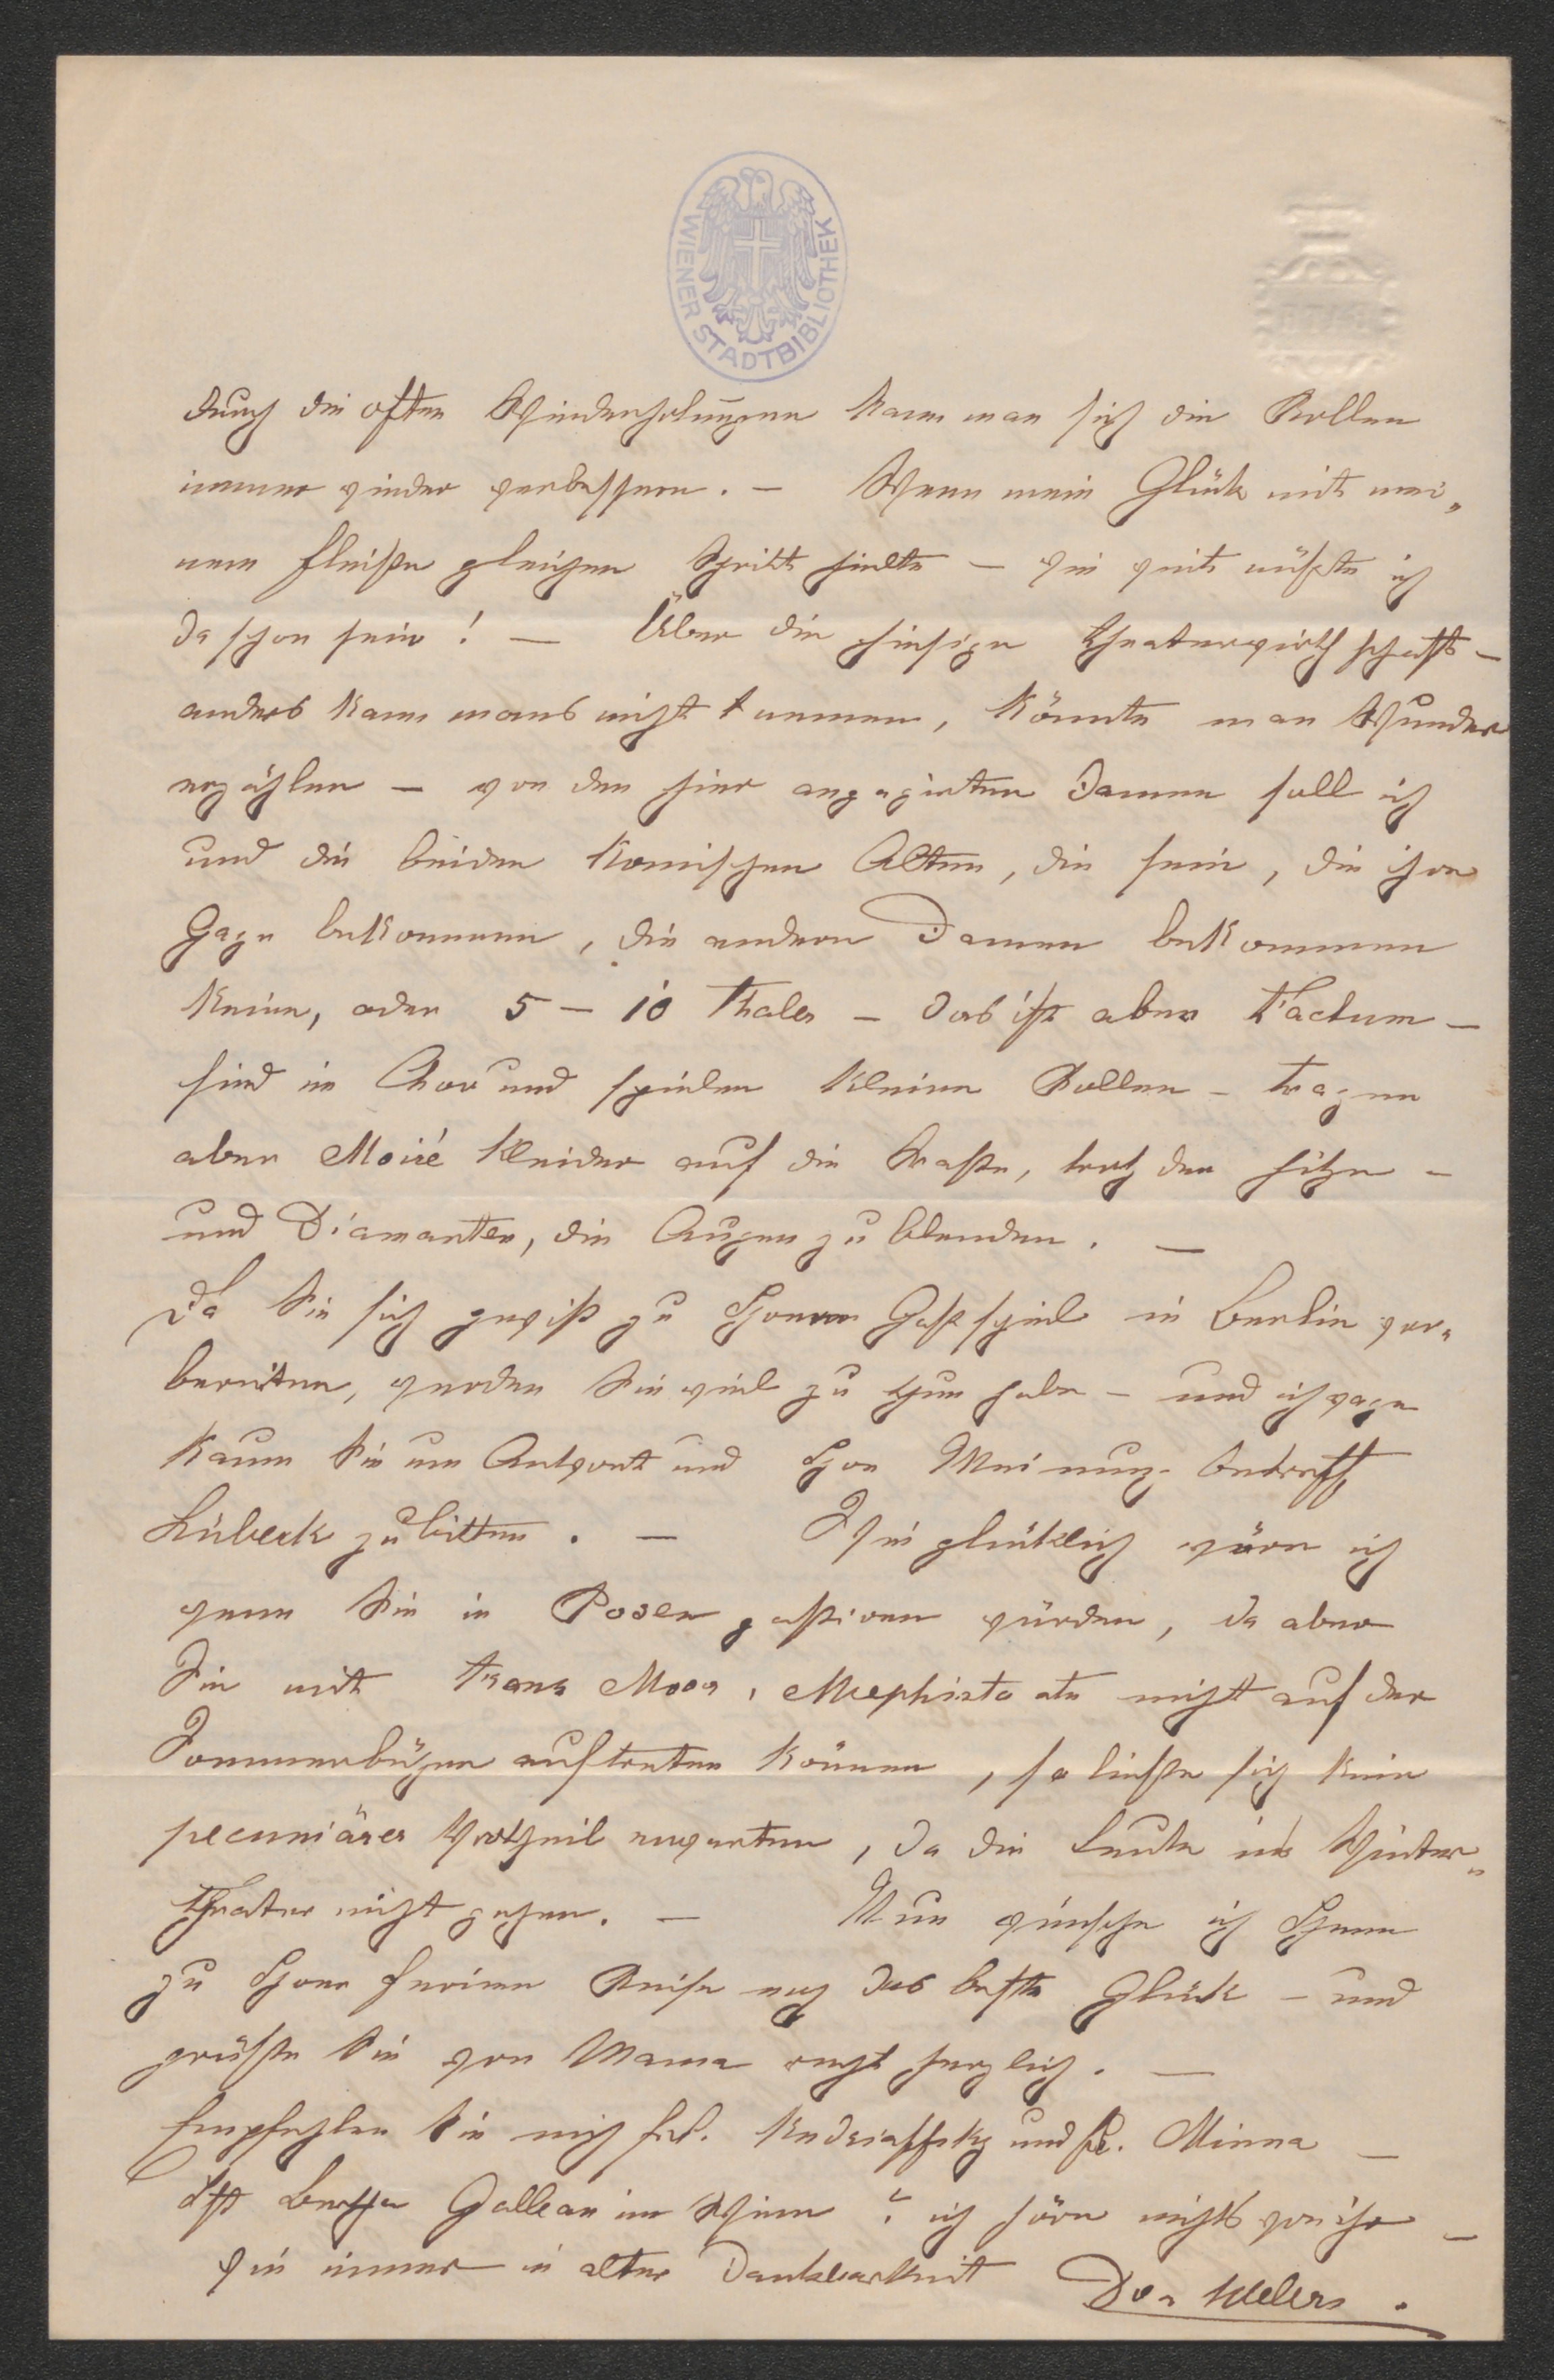 WIENER STADTBIBLIOTHEK
durch die often Wiederholungen kann man sich die Rollen
immer wieder verbessern. — Wenn mein Glück mit mei„
nem Fleiße gleichen Schritt hielte — wie weit müßte ich
da schon sein! — Über die hiesige Theaterwirthschaft —
anders kann mans nicht nennen, könnte man Wunder
erzählen — von den hier angagirten Damen soll ich
und die beiden komischen Alten, die sein, die ihre
Gage bekommen, die andern Damen bekommen
keine, oder 5 — 10 Thaler — das ist aber Factum —
sind im Chor und spielen kleine Rollen — tragen
aber Moiré Kleider auf die Straße, trotz der Hitze —
und Diamanten, die Augen zu blenden. —
Da Sie sich gewiß zu Ihrem Gastspiel in Berlin vor„
bereiten, werden Sie viel zu thun habe — und ich wage
kaum Sie um Antwort und Ihre Meinung betreff
Lübeck zu bitten. — Wie glücklich wäre ich
wenn Sie in Posen gastiren würden, da aber
Sie mit Franz Moor, Mephisto etc nicht auf der
Sommerbühne auftreten können, so ließe sich kein
pecuniärer Vortheil erwarten, da die Leute ins Winter„
theater nicht gehen. — Nun wünsche ich Ihnen
zu Ihrer Ferien Reise noch das beste Glück — und
grüße Sie von Mama recht herzlich. —
Empfehlen Sie mich Frl. und Fr. Minna —
Ist Bertha Gallean in Wien? ich höre nichts von ihr —
wie immer in alter Dankbarkeit